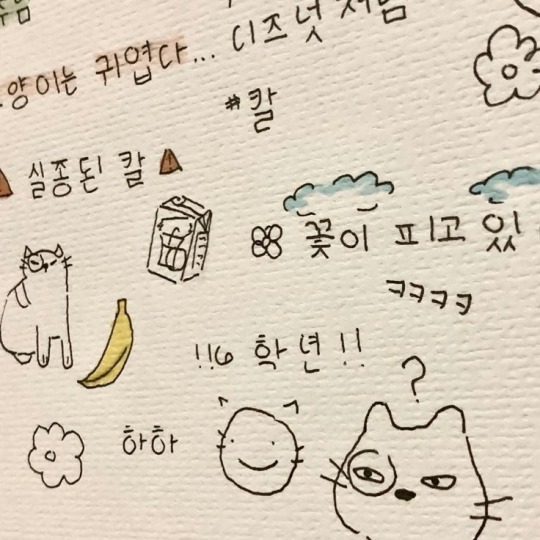 디즈넛 처럼
고양이는 귀엽다...
#칼
실종된 칼
꽃이 피고 있
ㅋㅋㅋㅋ
!!6 학년!!
?
하하